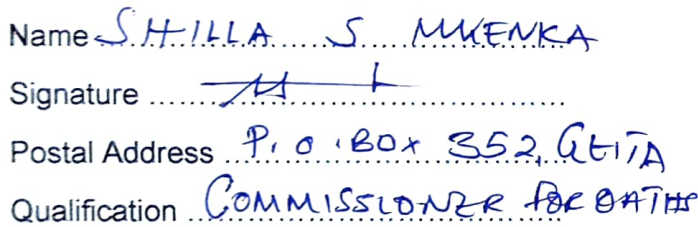 Name SHILLA S MKENKA
Signature
Postal Address P.O.BOX 352, GEITA
Qualification COMMISSIONER FOR OATHS